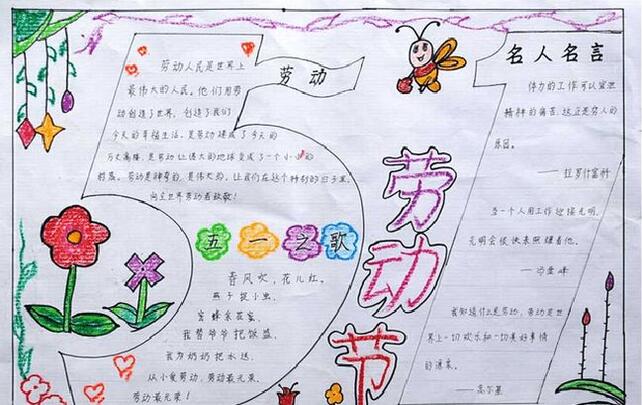 劳动
劳动人民是世界上
最伟大的人民。他们用劳
动创造了世界，创造了我们
今天的幸福生活。是劳动建成了今天的
万丈高楼，是劳动让偌大的地球变成了一个小小的
村落。劳动是神奇的，是伟大的，让我们在这个特别的日子里，
向全世界劳动者致敬！
五一之歌
春风吹，花儿红。
燕子捉小虫，
蜜蜂采花蜜，
我替爷爷把饭盛，
我为奶奶把水送，
从小爱劳动，劳动最光荣，
劳动最光荣！
劳动节
名人名言
体力的工作可以宽泄
精神的痛苦，这正是穷人的
乐园。
——拉罗什富科
当一个人用工作迎接光明，
光明会很快来照耀着他。
——冯雪峰
我知道什么是劳动，劳动是世
界上一切欢乐和一切美好事情
的源泉。
——高尔基